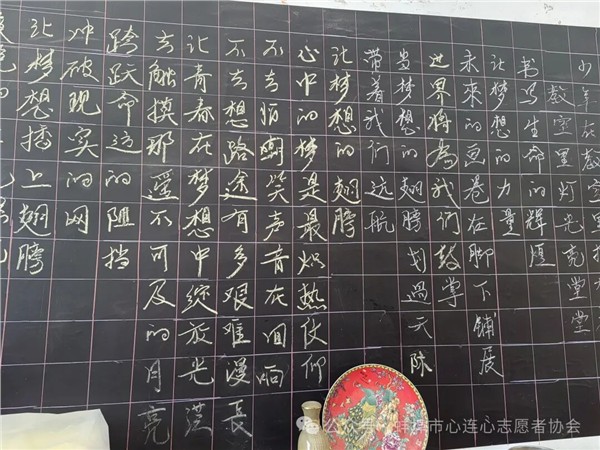 少年在教室里
教室里的灯光亮堂堂
书写生命的辉煌
让梦想的力量
未來的画卷在脚下铺展
世界將為我们鼓掌
当梦想的翅膀划過天际
带着我们的远航
让梦想的翅膀
心中的梦是最炽热仰
不去怕嘲笑声音在回响
不去想路途有多艰难漫長
让青春在梦想中绽放光芒
去触摸那遥不可及的月亮
跨跃命运的阻挡
冲破现实的网
让梦想插上翅膀
公众号 市心连心志愿者协会